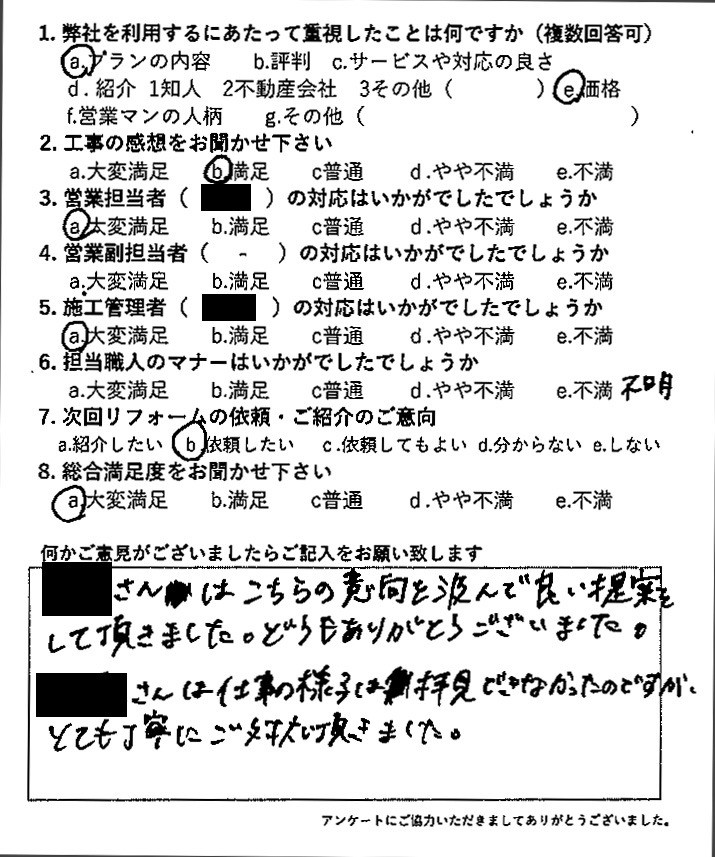 1. 弊社を利用するにあたって重視したことは何ですか（複数回答可）
a.プランの内容 b.評判 c.サービスや対応の良さ
d.紹介 1知人 2不動産会社 3その他（ ） e.価格
f.営業マンの人柄 g.その他（ ）
2. 工事の感想をお聞かせ下さい
a.大変満足 b.満足 c普通 d.やや不満 e.不満
3. 営業担当者（ ）の対応はいかがでしたでしょうか
a.大変満足 b.満足 c普通 d.やや不満 e.不満
4. 営業副担当者（ - ）の対応はいかがでしたでしょうか
a.大変満足 b.満足 c普通 d.やや不満 e.不満
5. 施工管理者（ ）の対応はいかがでしたでしょうか
a.大変満足 b.満足 c普通 d.やや不満 e.不満
6. 担当職人のマナーはいかがでしたでしょうか
a.大変満足 b.満足 c普通 d.やや不満 e.不満 不明
7. 次回リフォームの依頼・ご紹介のご意向
a.紹介したい b.依頼したい c.依頼してもよい d.分からない e.しない
8. 総合満足度をお聞かせ下さい
a.大変満足 b.満足 c普通 d.やや不満 e.不満
何かご意見がございましたらご記入をお願い致します
さんはこちらの意向を汲んで良い提案を
して頂きました。どうもありがとうございました。
さんは仕事の様子は拝見できなかったのですが、
とても丁寧にご対応頂きました。
アンケートにご協力いただきましてありがとうございました。